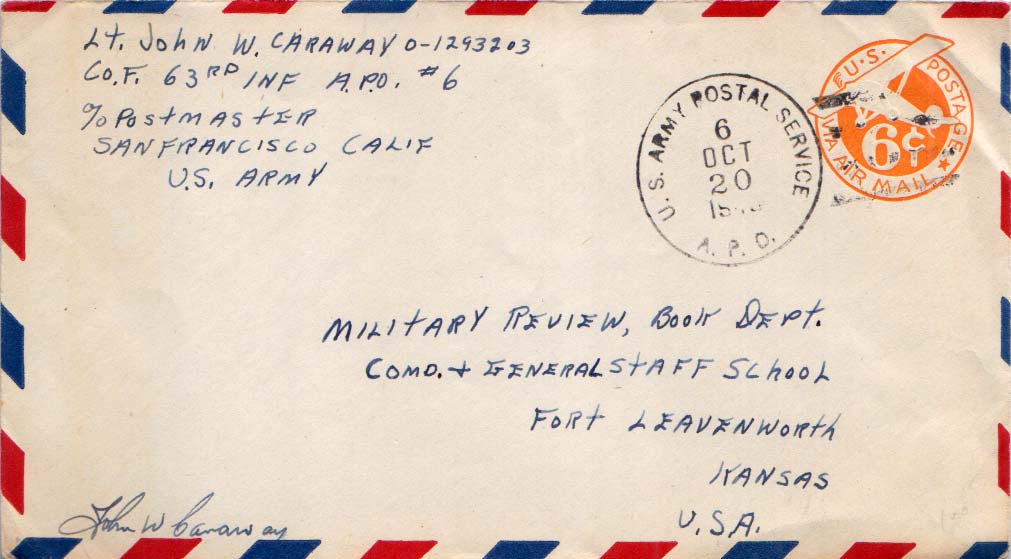 Lt. John W. Caraway O-1293203
Co.F. 63RD INF A.P.O. #6
c/o Postmaster
San Francisco Calif
U.S. Army
U.S. ARMY POSTAL SERVICE
6
OCT
20
A. P. O.
U.S. POSTAGE
6¢
VIA AIR MAIL
Military Review, Book Dept.
Comd. + General Staff School
Fort Leavenworth
Kansas
U.S.A.
John W Caraway